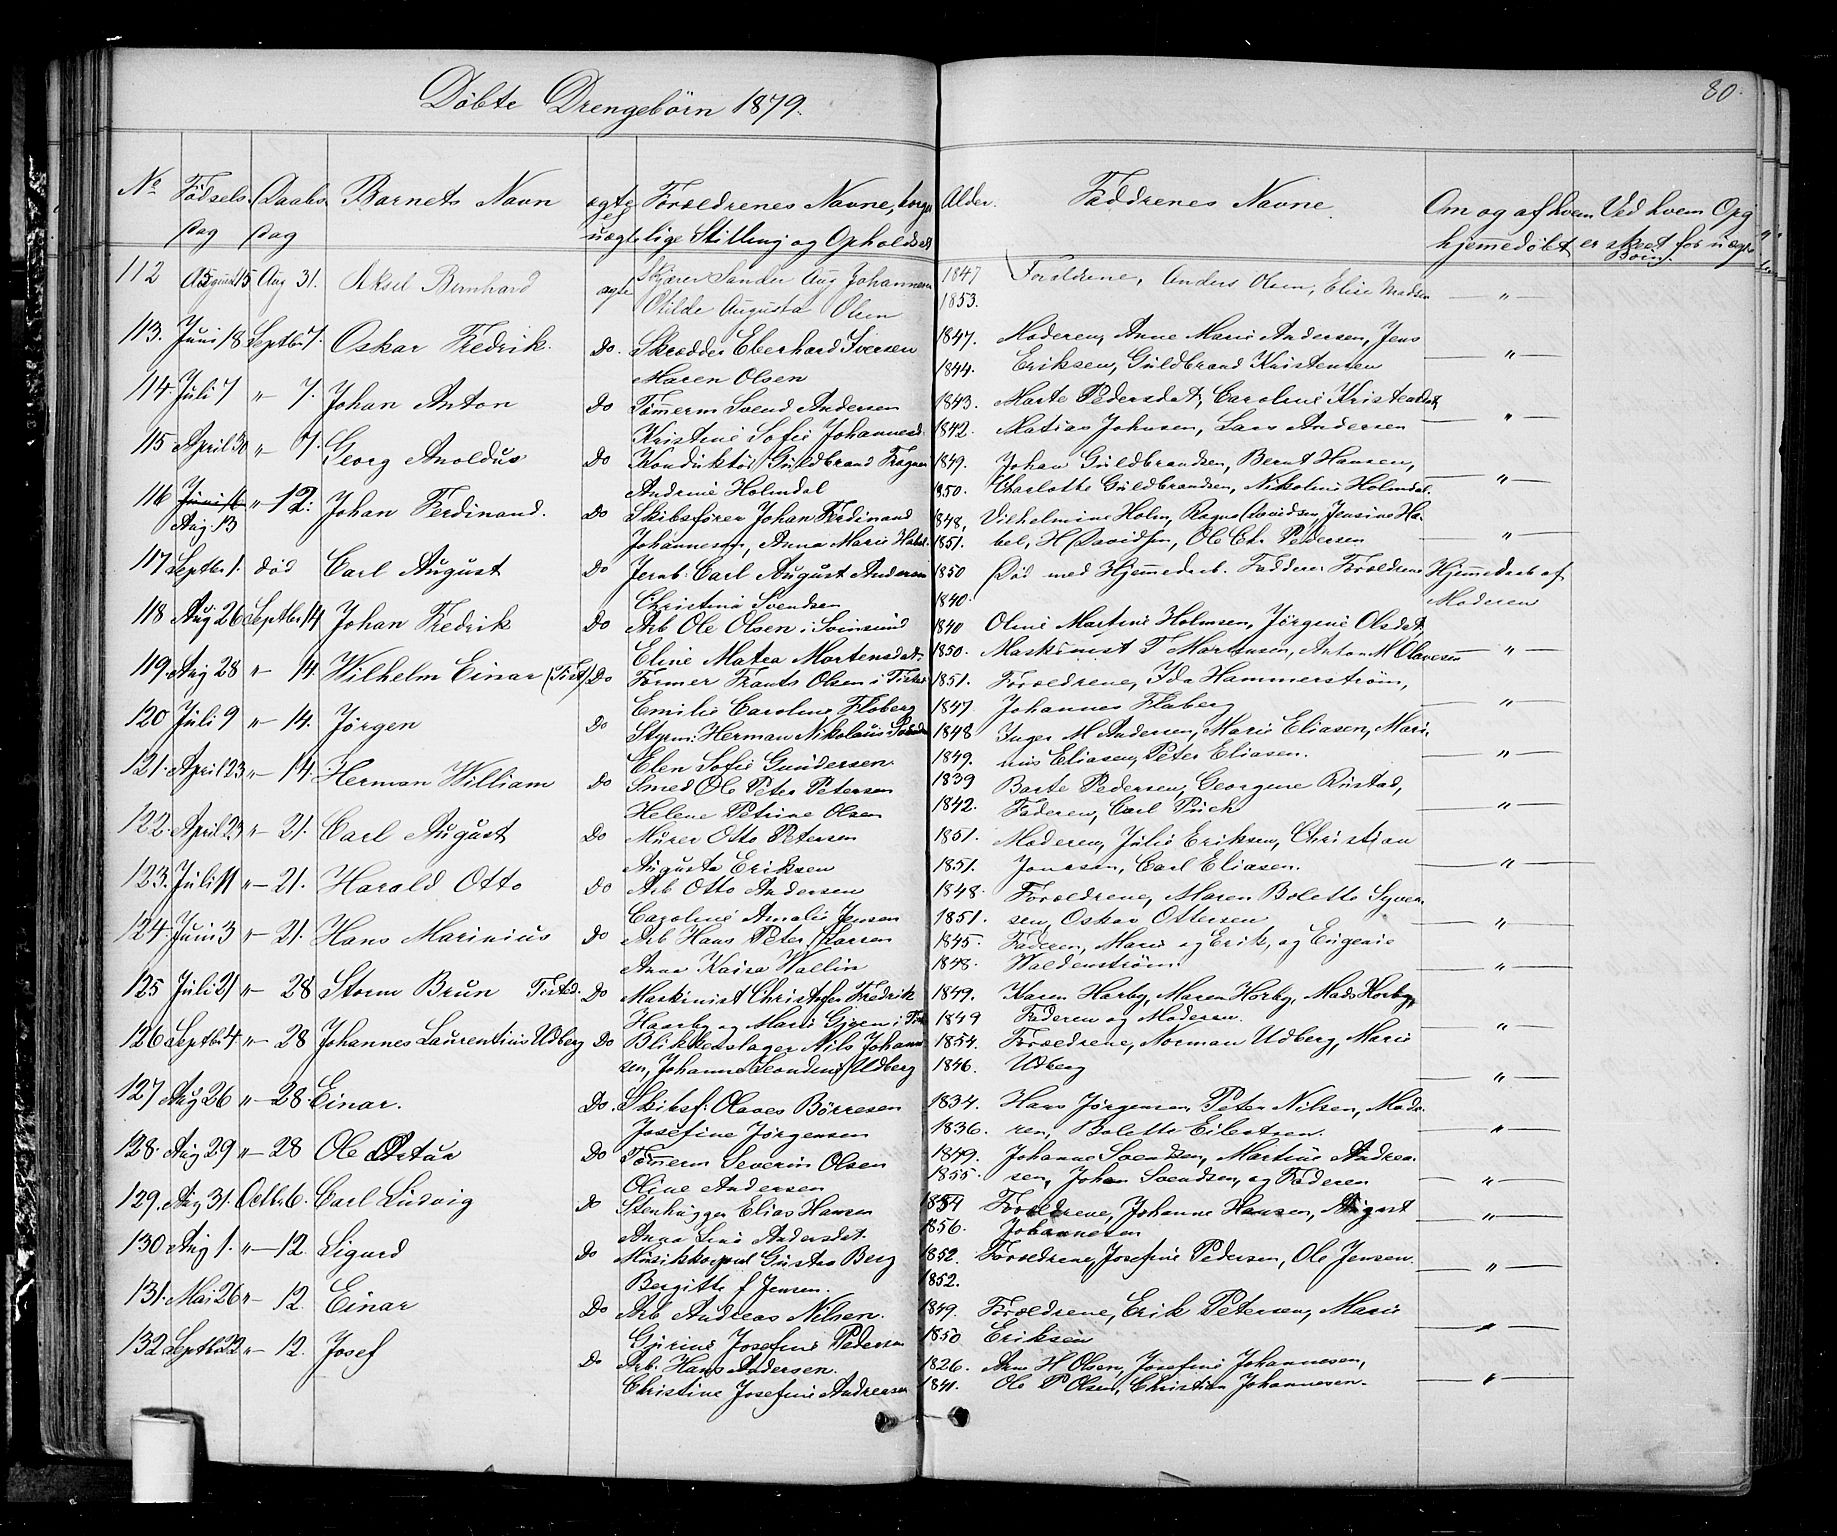 80.
Döbte Drengebörn 1879.
No Födsels Daabs Barnets Navn ægte Forældrenes Navne, borger Alder. Faddrenes Navne Om og af hvem Ved hvem Opg
dag dag uægte lige Stilling og Opholdsst hjemmedöbt er skeet for uægte Börn
112 August 15 Aug 31. Aksel Bernhard ægte Skjærer Sander Aug Johannesen 1847 Forældrene, Anders Olsen, Elise Madsen — " —
Otilde Augusta Olsen 1853.
113. Juni 18 Septbr 7. Oskar Fredrik. Do. Skrædder Eberhard Iversen 1847. Moderen, Anne Marie Andersen, Jens
Maren Olsen 1844. Eriksen, Guldbrand Kristensen — " —
114. Juli 7 " 7. Johan Anton Do Tömmerm Svend Andersen 1843. Marte Pedersdat, Caroline Kristensdat,
Kristine Sofie Johannesd. 1842. Matias Johnsen, Lars Andersen — " —
115 April 30 " 7. Georg Anoldus Do Konduktör Guldbrand Fragner 1849. Johan Guldbrandsen, Bernt Hansen,
Andrine Holmdal 1850. Charlotte Guldbrandsen, Nikoline Holmdal. — " —
116 Juni 16 " — 12. Johan Ferdinand. Do Skibsförer Johan Ferdinand 1848, Vilhelmine Holm, Ragna Davidsen, Jensine Ha-
Aug. 13 Johannesen, Anna Marie Habel 1851. bel, H Davidsen, Ole Chr Pedersen — " —
117 Septbr 1. död Carl August Do Jernb. Carl August Andersen 1850 Död med Hjemmedaab. Faddere Forældrene Hjemmedaab af
Christina Svendsen 1840. Moderen
118 Aug 26 Septbr 14 Johan Fredrik Do Arb Ole Olsen i Svinsund 1840 Oline Martine Holmsen, Jörgine Olsdat,
Eline Matea Mortensdat. 1850. Maskinist T Mortensen, Anton M Olavesen — " —
119. Aug 28 " 14. Wilhelm Einar (Tist.) Do Former Frants Olsen i Tistedal 1851. Forældrene, Ida Hammerström,
Emilie Caroline Floberg 1847 Johannes Floberg — " —
120 Juli 9 " — 14. Jörgen Do Styrm: Herman Nikolaus 1848 Inger M Andersen, Marie Eliasen, Mari-
Elen Sofie Gundersen 1849. nus Eliasen, Peter Eliasen. — " —
121. April 23 " — 14. Herman William Do Smed Ole Peter Petersen 1839 Barte Pedersen, Georgine Rustad,
Helene Petrine Olsen 1842. Faderen, Carl Puck — " —
122. April 23 " — 21. Carl August Do Murer Otto Petersen 1851. Moderen, Julie Eriksen, Christian
Augusta Eriksen 1851. Jonasson, Carl Eliasen. — " —
123. Juli 11 " — 21. Harald Otto Do Arb Otto Andersen 1848. Forældrene, Maren Bolette Syver-
Caroline Amalie Jensen 1851. sen, Oskar Ottersen — " —
124. Juni 3 " — 21. Hans Marinius Do Arb Hans Peter Larsen 1845. Faderen, Marie og Erik, og Eugenie
Anna Kaisa Wallin 1848. Waldenström. — " —
125 Juli 21 " — 28 Storm Brun Tistd. Do Maskinist Christofer Fredrik 1849. Karen Harby, Maren Horby, Mads Horby,
Haarby og Marie Gjeen i Tist 1849 Faderen og Moderen. — " —
126 Septbr 4 " — 28 Johannes Laurentius Udberg Do Blikkenslager Nils Johann- 1854. Forældrene, Norman Udberg, Marie
sen, Johanne Leondine Udberg 1846. Udberg — " —
127 Aug 26 " — 28. Einar. Do. Skibsf: Olaves Börresen 1834. Hans Jörgensen, Peter Nilsen, Mads-
Josefine Jörgensen 1836. ren, Bolette Eilertsen. — " —
128. Aug 29 " — 28 Ole Artur Do Tömmerm Severin Olsen 1849. Johanne Svendsen, Martine Andrea-
Oline Andersen 1855. sen, Johan Svendsen, og Faderen — " —
129. Aug 31. Octbr 6. Carl Ludvig Do Stenhugger Elias Hansen 1854 Forældrene, Johanne Hansen, August
Anna Lene Andersdat. 1856. Johannesen — " —
130 Aug 1. " — 12. Sigurd Do Musikkorporal Gustav Berg 1852. Forældrene, Josefine Pedersen, Ole Jensen.
Bergitte f Jensen. 1852. — " —
131. Mai 26 " — 12. Einar Do Arb Andreas Nilsen. 1849. Forældrene, Erik Petersen, Marie
Gurine Josefine Pedersen 1850 Eriksen — " —
132 Septbr 22 " — 12. Josef Do Arb. Hans Andersen. 1826. Arne H Olsen, Josefine Johannesen,
Christine Josefine Andreasen 1841. Ole P Olsen, Christian Johannesen. — " —